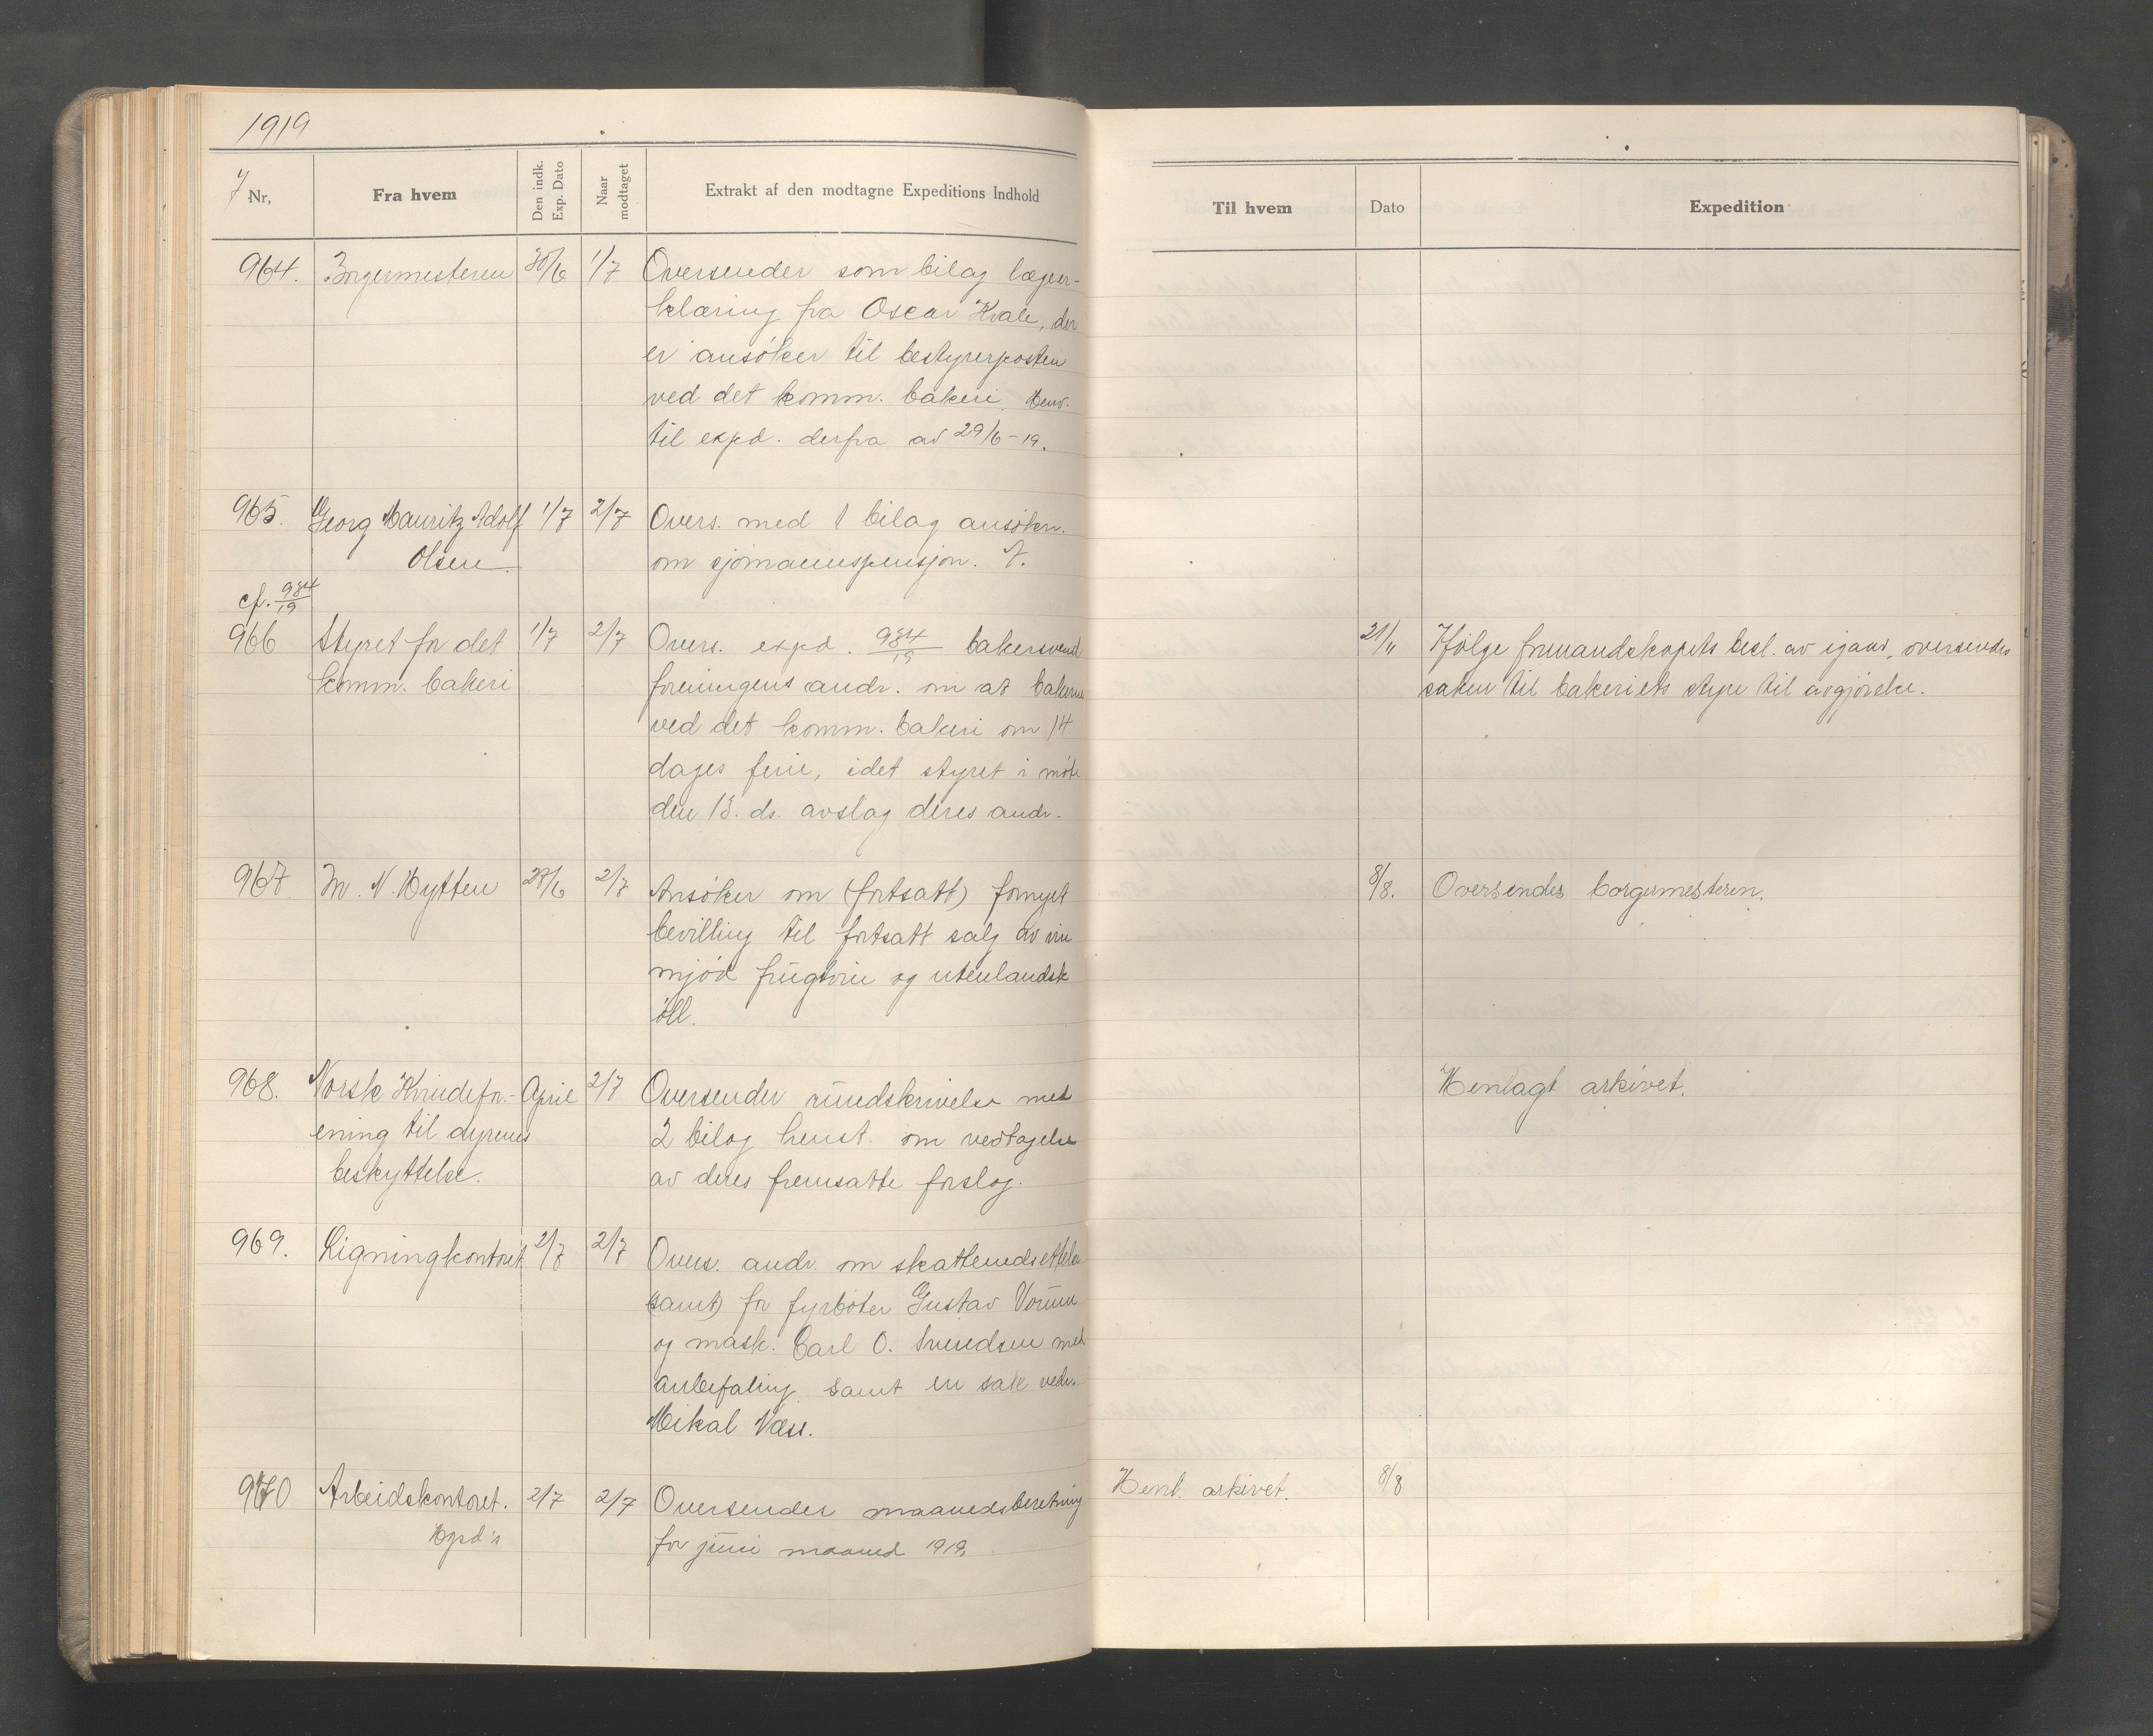 1919
7 Nr. Fra hvem Den indk. Exp. Dato Naar modtaget Extrakt af den modtagne Expeditions Indhold Til hvem Dato Expedition
964. Borgermesteren 30/6 1/7 Oversender som bilag lægeer-
klæring fra Oscar Kvale, der
er ansöker til bestyrerposten
ved det komm. bakeri. Henv.
til exped. derfra av 29/6-19.
965. Georg Mauritz Adolf 1/7 2/7 Overs. med 1 bilag ansökn.
Olsen om sjömannspensjon.
cf. 984/19
966 Styret for det 1/7 2/7 Overs. exped. 984/19 bakersvend 21/11 Ifölge formandskapets besl. av igaar, oversendes
komm. bakeri foreningens andr. om at bakerne saken til bakeriets styre til avgjörelse.
ved det komm. bakeri om 14
dages ferie, idet styret i möte
den 13. ds. avslog deres andr.
967 M. N. Hytten 2/7 Ansöker om (fortsatt) fornyet 8/8. Oversendes borgermesteren.
bevilling til fortsatt salg av vin
mjöd frugtvin og utenlandsk
öll.
968. Norsk Kvindefor- April 2/7 Oversender rundskrivelse med Henlagt arkivet.
ening til dyrenes 2 bilag henst. om vedtagelse
beskyttelse. av deres fremsatte forslag.
969. Ligningkontoret 2/7 2/7 Overs. andr. om skattenedsettelse
(samt) for fyrböter Gustav
og mask. Carl O. Svendsen med
anbefaling samt en sak vedr.
Mikal Væss.
970 Arbeidskontoret. 2/7 2/7 Oversender maanedsberetning Henl. arkivet. 8/8
for juni maaned 1919.